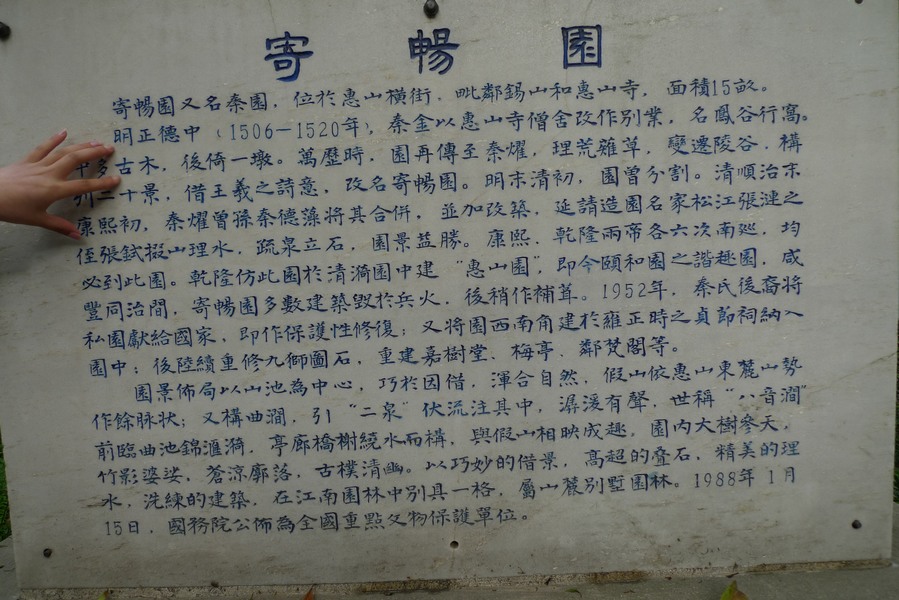 寄暢園
寄暢園又名秦園，位於惠山橫街，毗鄰錫山和惠山寺，面積15畝。
明正德中（1506—1520年），秦金以惠山寺僧舍改作別業，名鳳谷行窩。
中多古木，後倚一墩。萬歷時，園再傳至秦燿，理荒雜草，變遷陵谷，構
列二十景，借王羲之詩意，改名寄暢園。明末清初，園曾分割。清順治末
康熙初，秦燿曾孫秦德藻將其合併，並加改築，延請造園名家松江張漣之
侄張鉽掇山理水，疏泉立石，園景益勝。康熙、乾隆兩帝各六次南巡，均
必到此園。乾隆仿此園於清漪園中建“惠山園”，即今頤和園之諧趣園，咸
豐同治間，寄暢園多數建築毀於兵火，後稍作補葺。1952年，秦氏後裔將
私園獻給國家，即作保護性修復；又將園西南角建於雍正時之貞節祠納入
園中；後陸續重修九獅圖石，重建嘉樹堂、梅亭、鄰梵閣等。
園景佈局以山池為中心，巧於因借，渾合自然，假山依惠山東麓山勢
作餘脉狀；又構曲澗，引“二泉”伏流注其中，潺湲有聲，世稱“八音澗”
前臨曲池錦滙漪，亭廊橋榭繞水而構，與假山相映成趣，園內大樹參天，
竹影婆娑，蒼涼廓落，古樸清幽。以巧妙的借景，高超的叠石，精美的理
水，洗練的建築，在江南園林中別具一格，屬山麓別墅園林。1988年1月
15日，國務院公佈為全國重點文物保護單位。